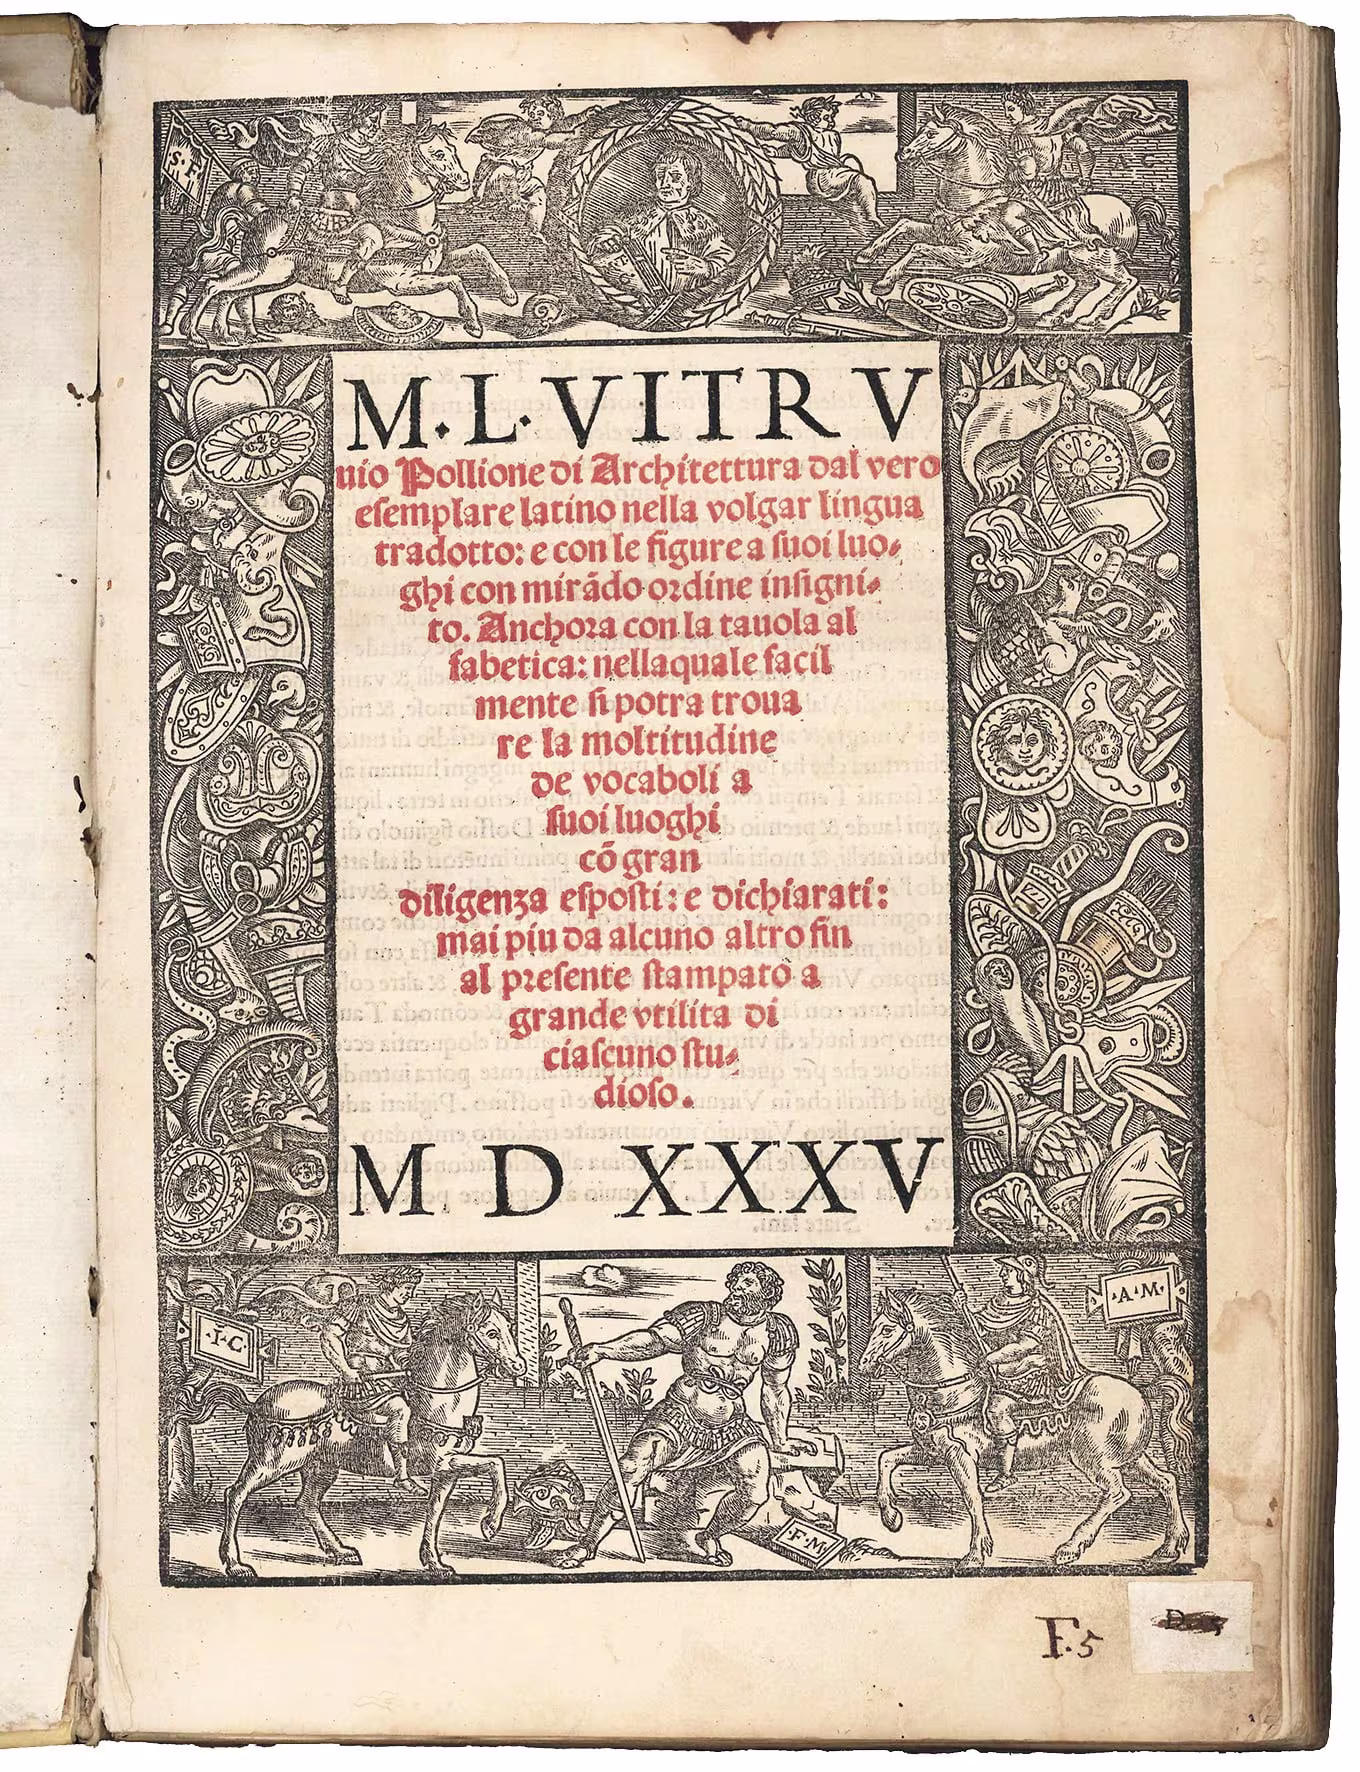 S.F.
M.L.VITRV
uio Pollione di Architettura dal vero
esemplare latino nella volgar lingua
tradotto: e con le figure a suoi luo-
ghi con mirādo ordine insigni-
to. Anchora con la tauola al
fabetica: nellaquale facil
mente si potra troua
re la moltitudine
de vocaboli a
suoi luoghi
cō gran
diligenza esposti: e dichiarati:
mai piu da alcuno altro fin
al presente stampato a
grande vtilita di
ciascuno stu-
dioso.
M D XXXV
.I.C.
.A.M.
.F.M.
F.5